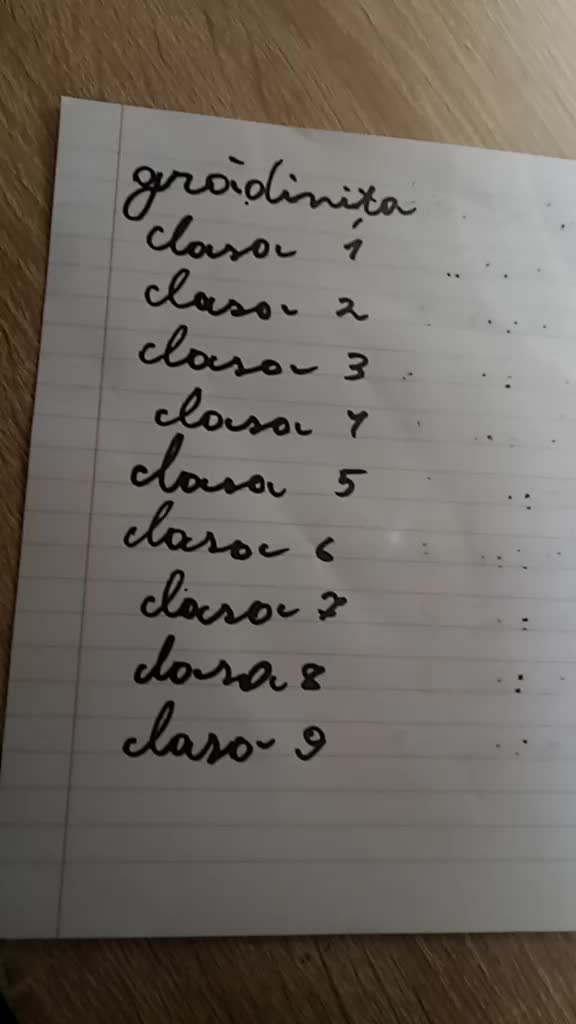 grădinița
clasa 1
clasa 2
clasa 3
clasa 4
clasa 5
clasa 6
clasa 7
clasa 8
clasa 9